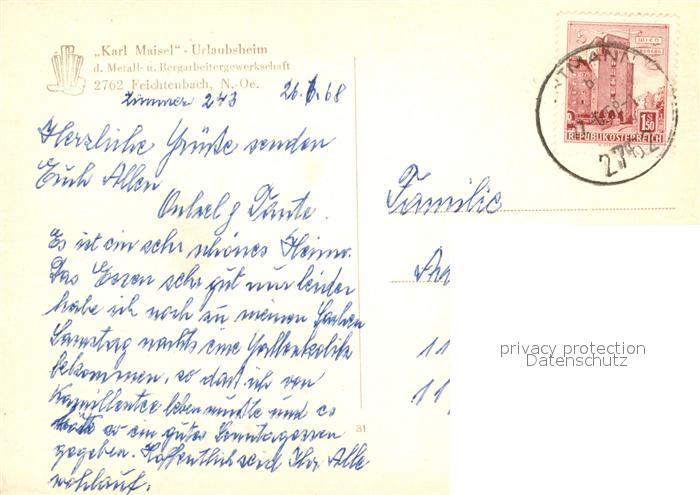 „Karl Maisel“ - Urlaubsheim
d. Metall- u. Bergarbeitergewerkschaft
2762 Feichtenbach, N.-Oe.
Zimmer 243 26.6.68
Herzliche Grüße senden
Euch Allen
Onkel g Tante.
Es ist ein sehr schönes Heim.
Das Essen sehr gut nur leider
habe ich noch zu meinen
Samstag nachts eine Gallenkolik
bekommen, so daß ich von
Kamillentee leben mußte und es
so ein gutes Sonntagessen
gegeben. Hoffentlich seid Ihr Alle
wohlauf.
31
WIEN
1.50
REPUBLIK ÖSTERREICH
Familie
11
11
privacy protection
Datenschutz